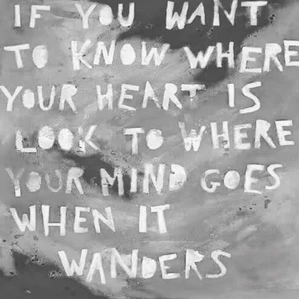 IF YOU WANT
TO KNOW WHERE
YOUR HEART IS
LOOK TO WHERE
YOUR MIND GOES
WHEN IT
WANDERS